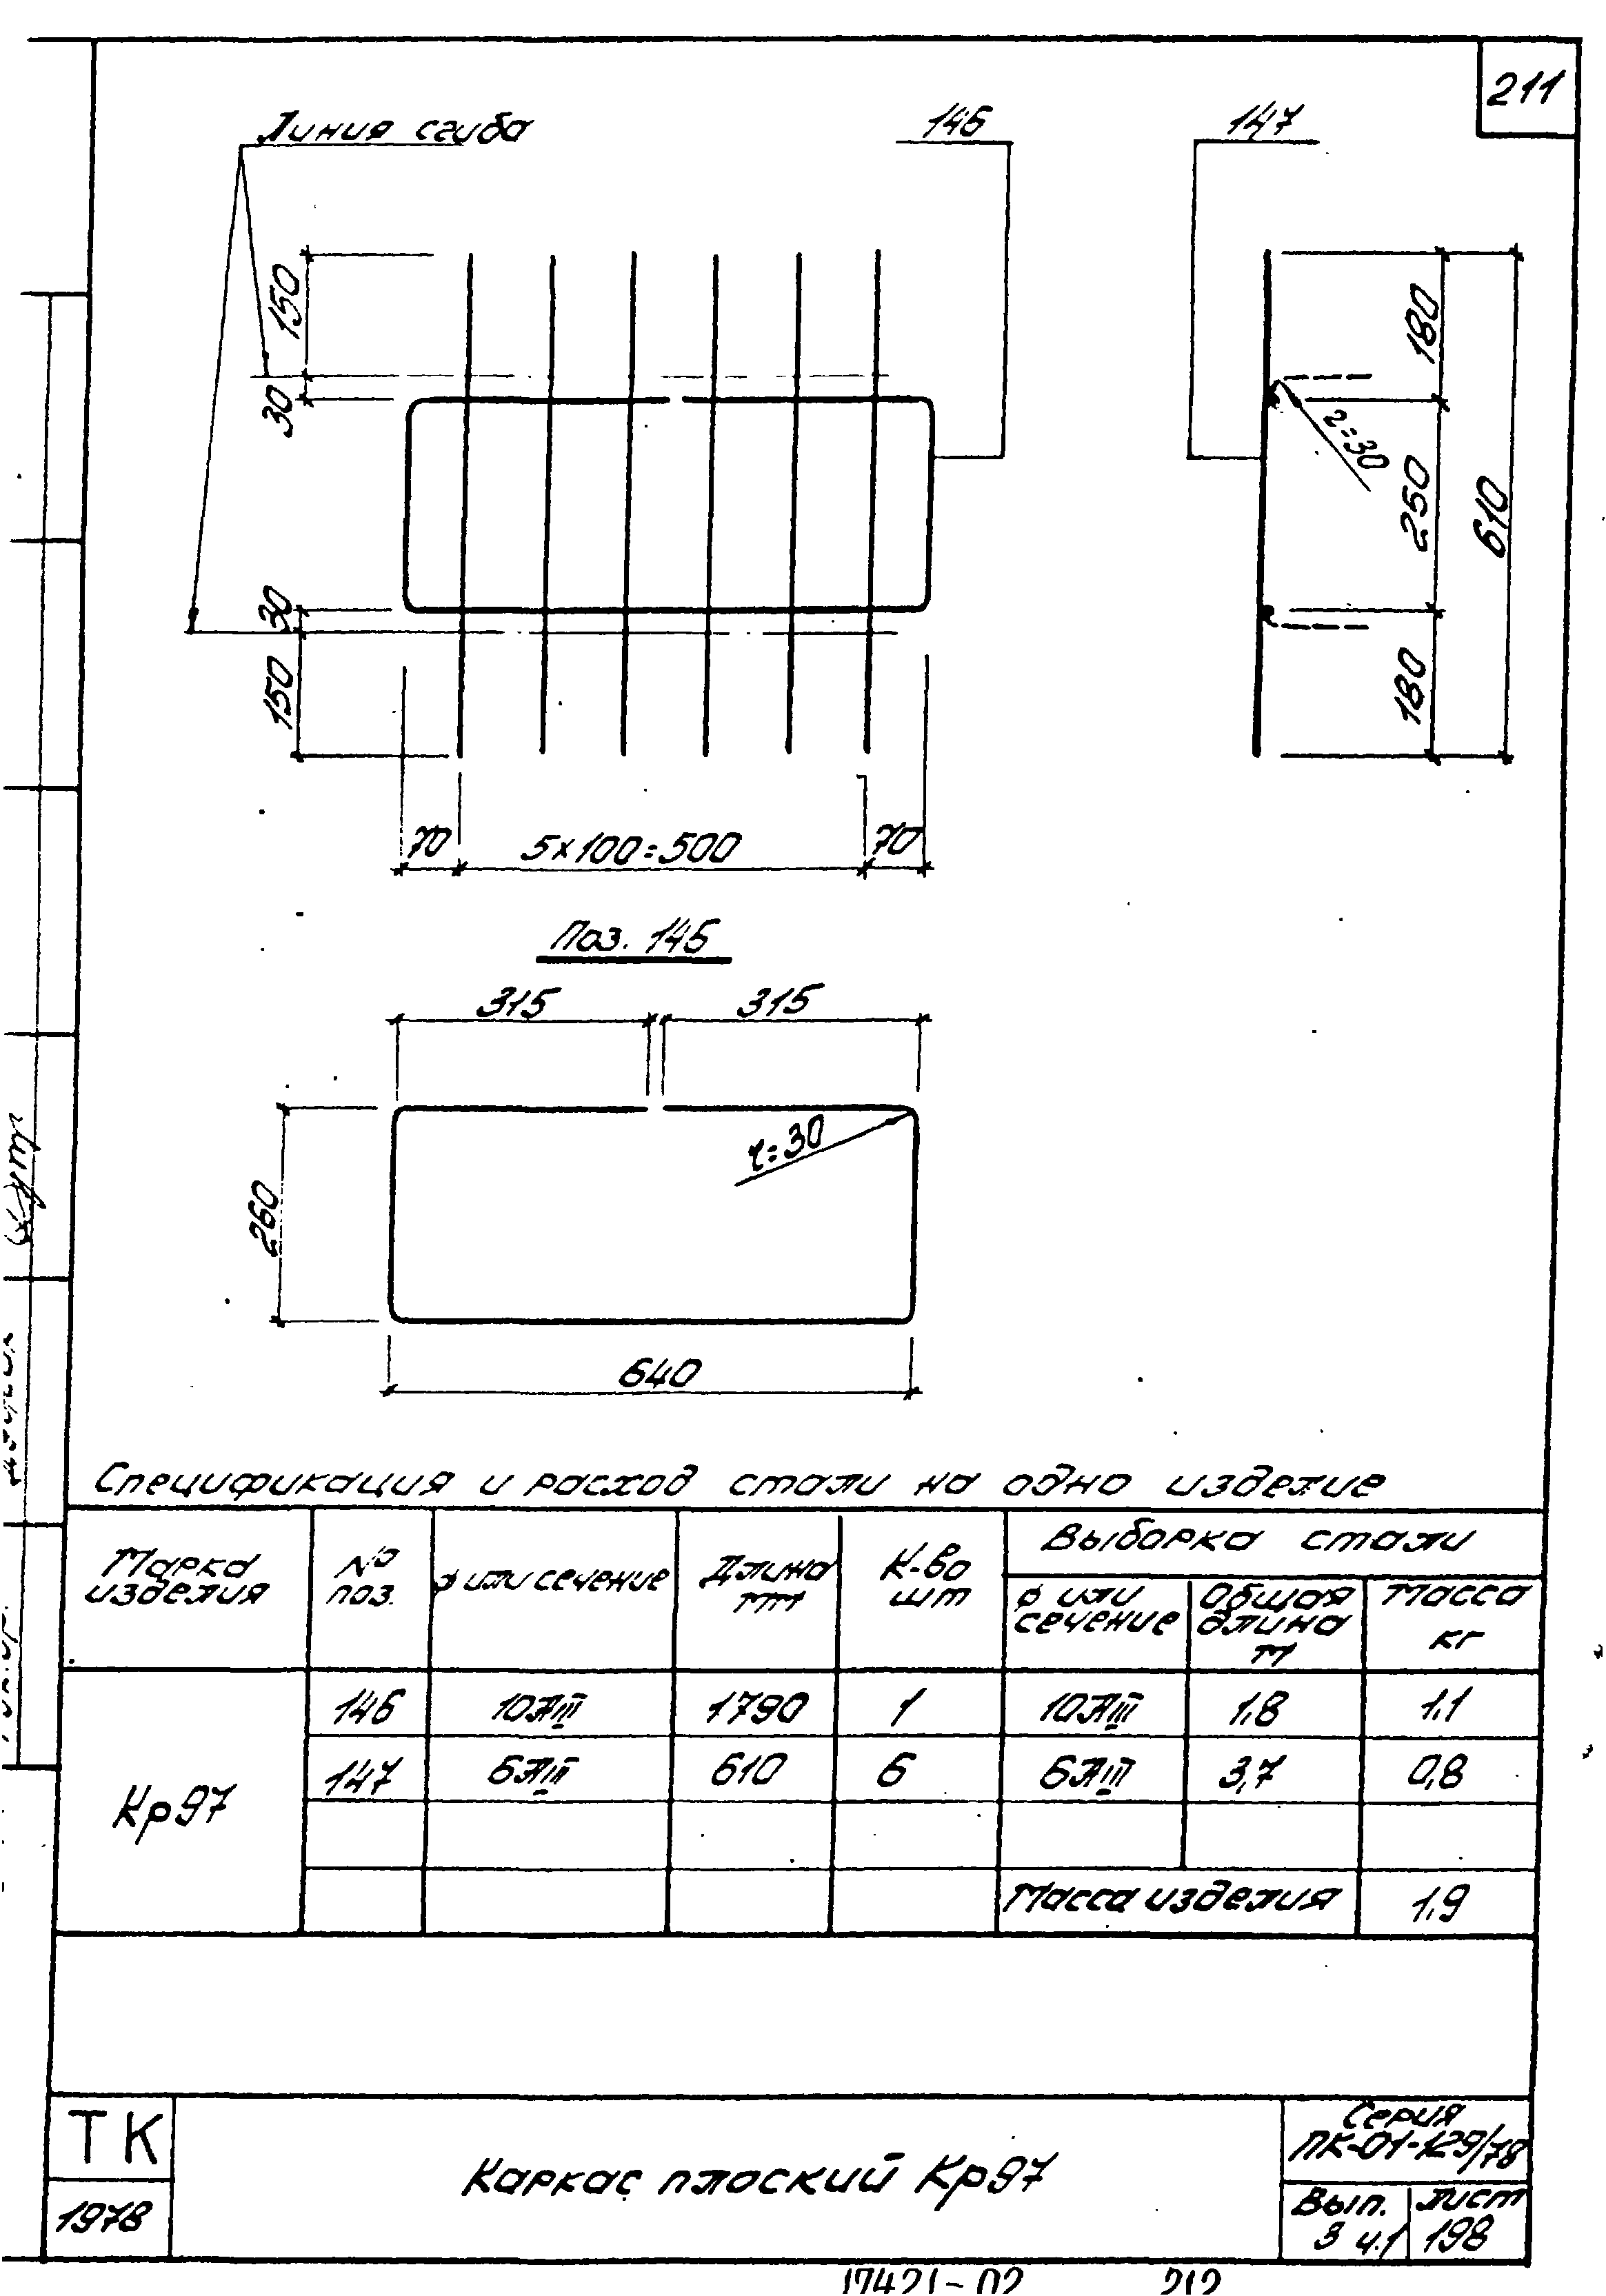 211
Линия сгиба
146
147
150
30
30
150
180
250
180
610
r=30
70
5×100=500
70
Поз. 146
315
315
r=30
260
640
Спецификация и расход стали на одно изделие
Марка изделия
№ поз.
φ или сечение
Длина мм
К-во шт
Выборка стали
φ или сечение
Общая длина м
Масса кг
Кр97
146 10АIII 1790 1 10АIII 1,8 1,1
147 6АIII 610 6 6АIII 3,7 0,8
Масса изделия 1,9
ТК
1978
Каркас плоский Кр97
Серия
ПК-01-129/78
Вып.
3 ч.1
лист
198
17421-02
212